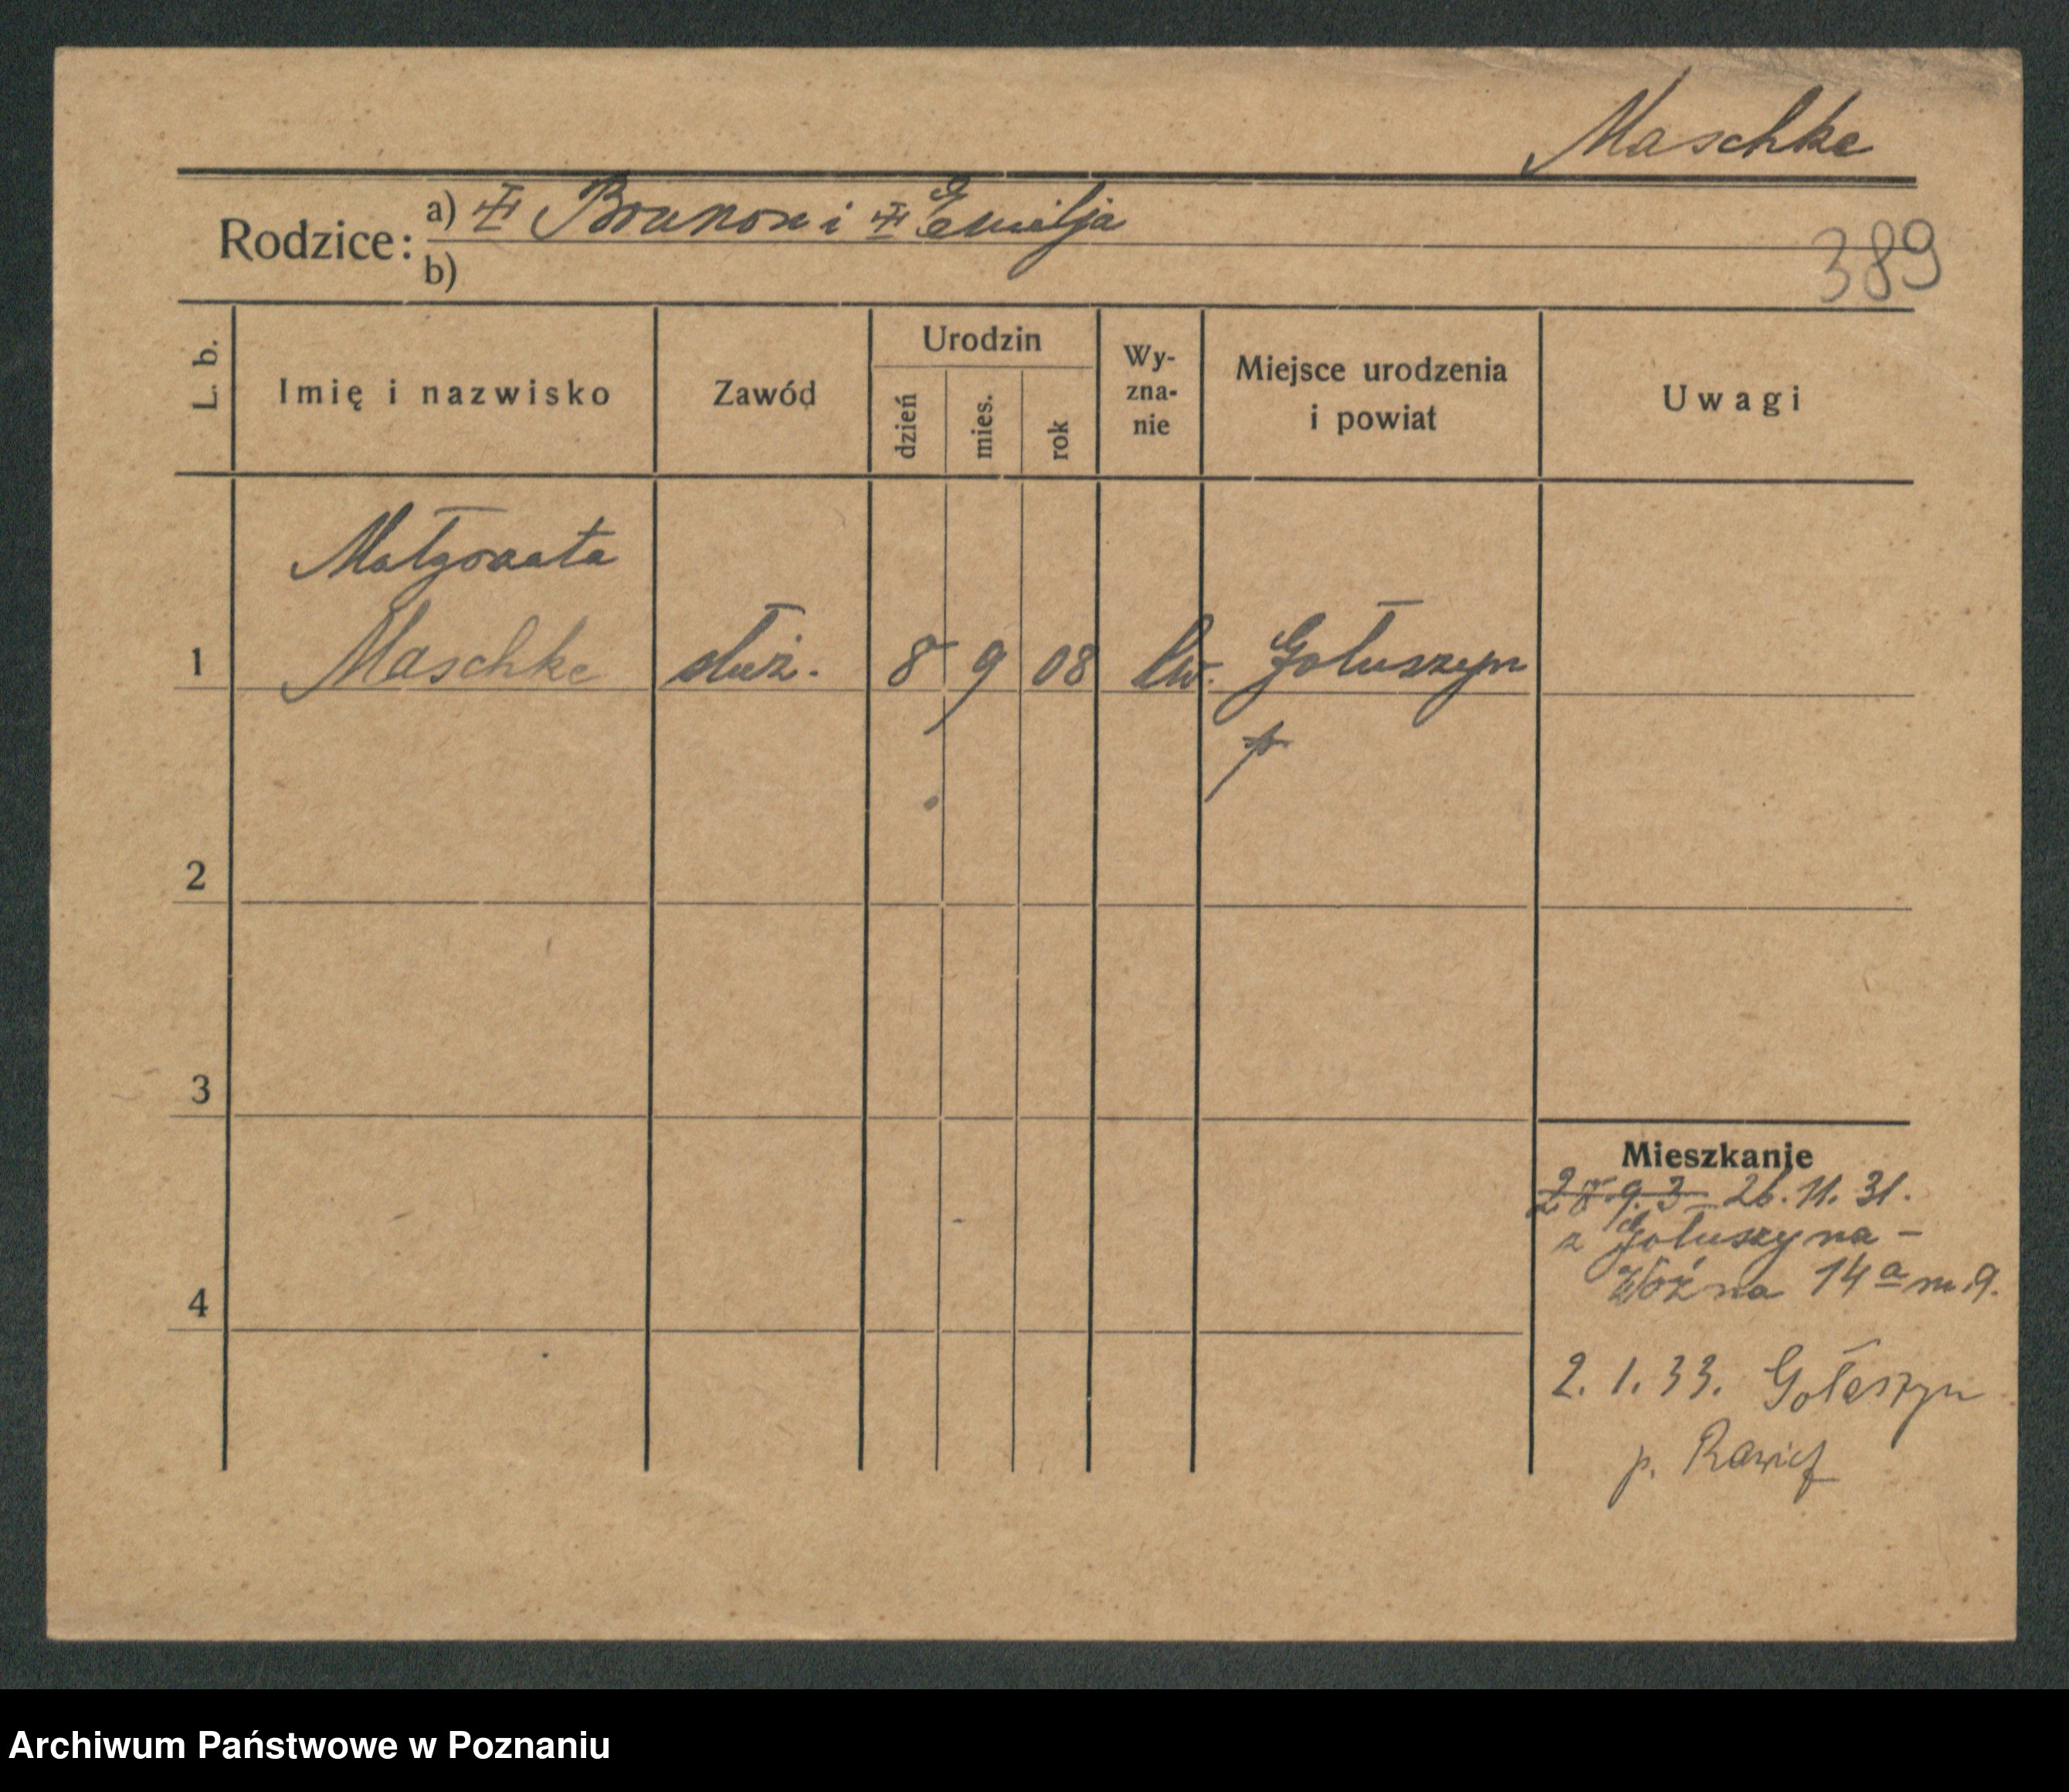 Maschke
Rodzice: a) Brunon i Emilja
b)
389
L. b.
Imię i nazwisko
Zawód
Urodzin
dzień
mies.
rok
Wy-
zna-
nie
Miejsce urodzenia
i powiat
Uwagi
Małgorzata
1 Maschke służ. 8 9 08 ew. Gołuszyn
2
3
4
Mieszkanie
26. 11. 31.
z Gołuszyna -
Woźna 14a m 9.
2. 1. 33. Gołaszyn
p. Rawicz
Archiwum Państwowe w Poznaniu